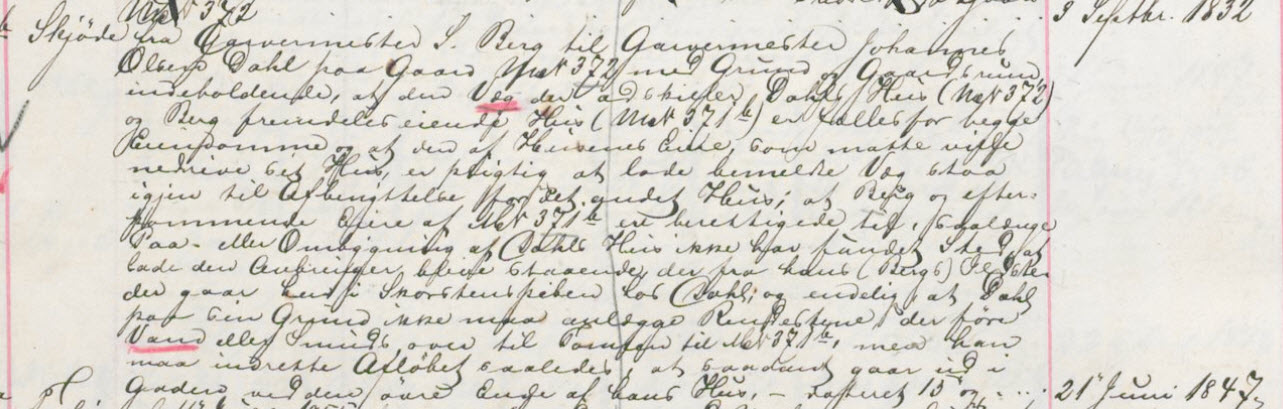 Mat N 372 3 Septbr. 1832
Skjöde fra Garvermester S. Berg til Garvermester Johannes
Olsen Dahl paa Gaard Mat N 372 med Grund og Gaardsrum,
indeholdende, at den Væg der adskiller Dahls Huus (Mat N 372)
og Berg fremdeles eiende Huus (Mat N 371 b) er fælles for begge
Eiendomme og at den af Husenes Eiere, som maatte ville
nedrive sit Huus, er pligtig at lade bemeldte Væg staa
igjen til Afbenyttelse for det andet Huus; at Berg og efter-
kommende Eiere af Mat N 371 b er berettigede til, saalænge
Paa- eller Ombygning af Dahls Huus ikke har fundet Sted, at
lade den blive staaende, der fra hans (Bergs)
der gaar ind i Skorstenspiben hos Dahl; og endelig, at Dahl
paa sin Grund ikke maa anlægge Rendestene, der före
Vand eller Smuds over til Tomten til Mat N 371 b, men han
maa indrette Aflöbet saaledes, at saadant gaar ud i
Gaden ved den övre Ende af hans Huus, – dateret 15 og ... 21 Juni 1847